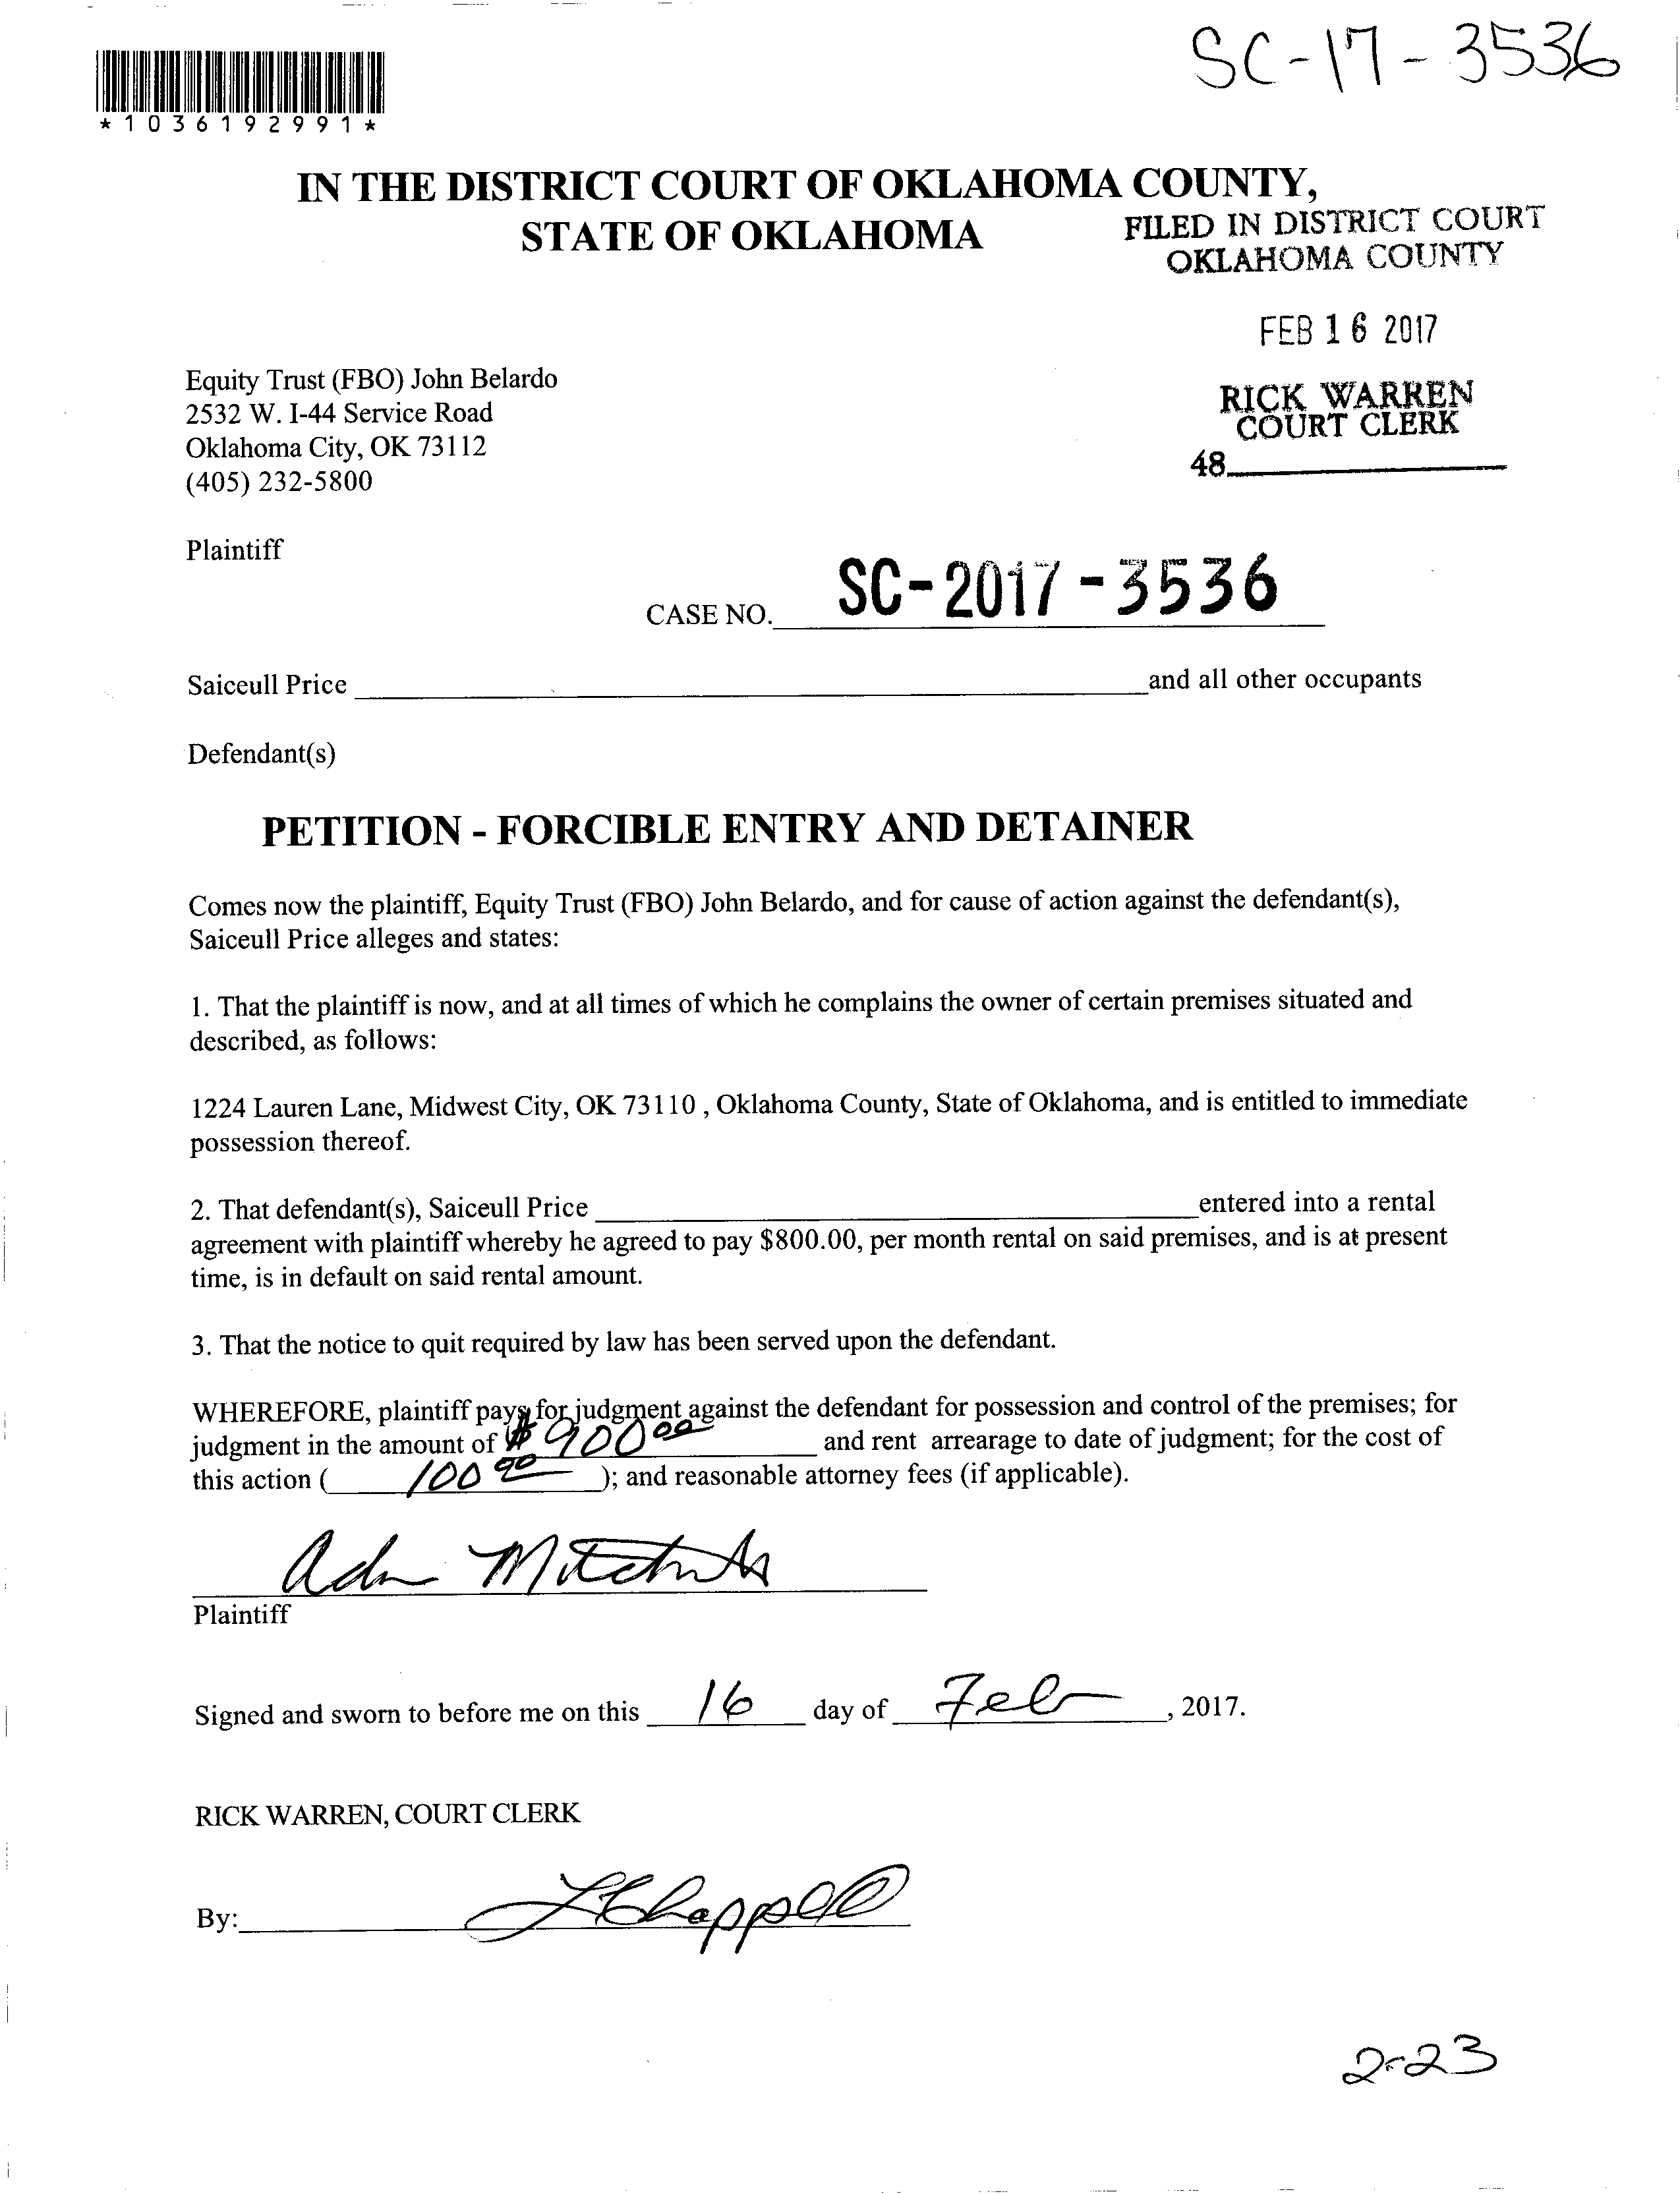 SC-17-3536
*1036192991*
IN THE DISTRICT COURT OF OKLAHOMA COUNTY,
STATE OF OKLAHOMA
FILED IN DISTRICT COURT
OKLAHOMA COUNTY
FEB 16 2017
RICK WARREN
COURT CLERK
48
Equity Trust (FBO) John Belardo
2532 W. I-44 Service Road
Oklahoma City, OK 73112
(405) 232-5800
Plaintiff
CASE NO. SC-2017-3536
Saiceull Price and all other occupants
Defendant(s)
PETITION - FORCIBLE ENTRY AND DETAINER
Comes now the plaintiff, Equity Trust (FBO) John Belardo, and for cause of action against the defendant(s),
Saiceull Price alleges and states:
1. That the plaintiff is now, and at all times of which he complains the owner of certain premises situated and
described, as follows:
1224 Lauren Lane, Midwest City, OK 73110 , Oklahoma County, State of Oklahoma, and is entitled to immediate
possession thereof.
2. That defendant(s), Saiceull Price entered into a rental
agreement with plaintiff whereby he agreed to pay $800.00, per month rental on said premises, and is at present
time, is in default on said rental amount.
3. That the notice to quit required by law has been served upon the defendant.
WHEREFORE, plaintiff pays for judgment against the defendant for possession and control of the premises; for
judgment in the amount of $900 00 and rent arrearage to date of judgment; for the cost of
this action ( 100 00 ); and reasonable attorney fees (if applicable).
Plaintiff
Signed and sworn to before me on this 16 day of Feb, 2017.
RICK WARREN, COURT CLERK
By: Chappell
2-23